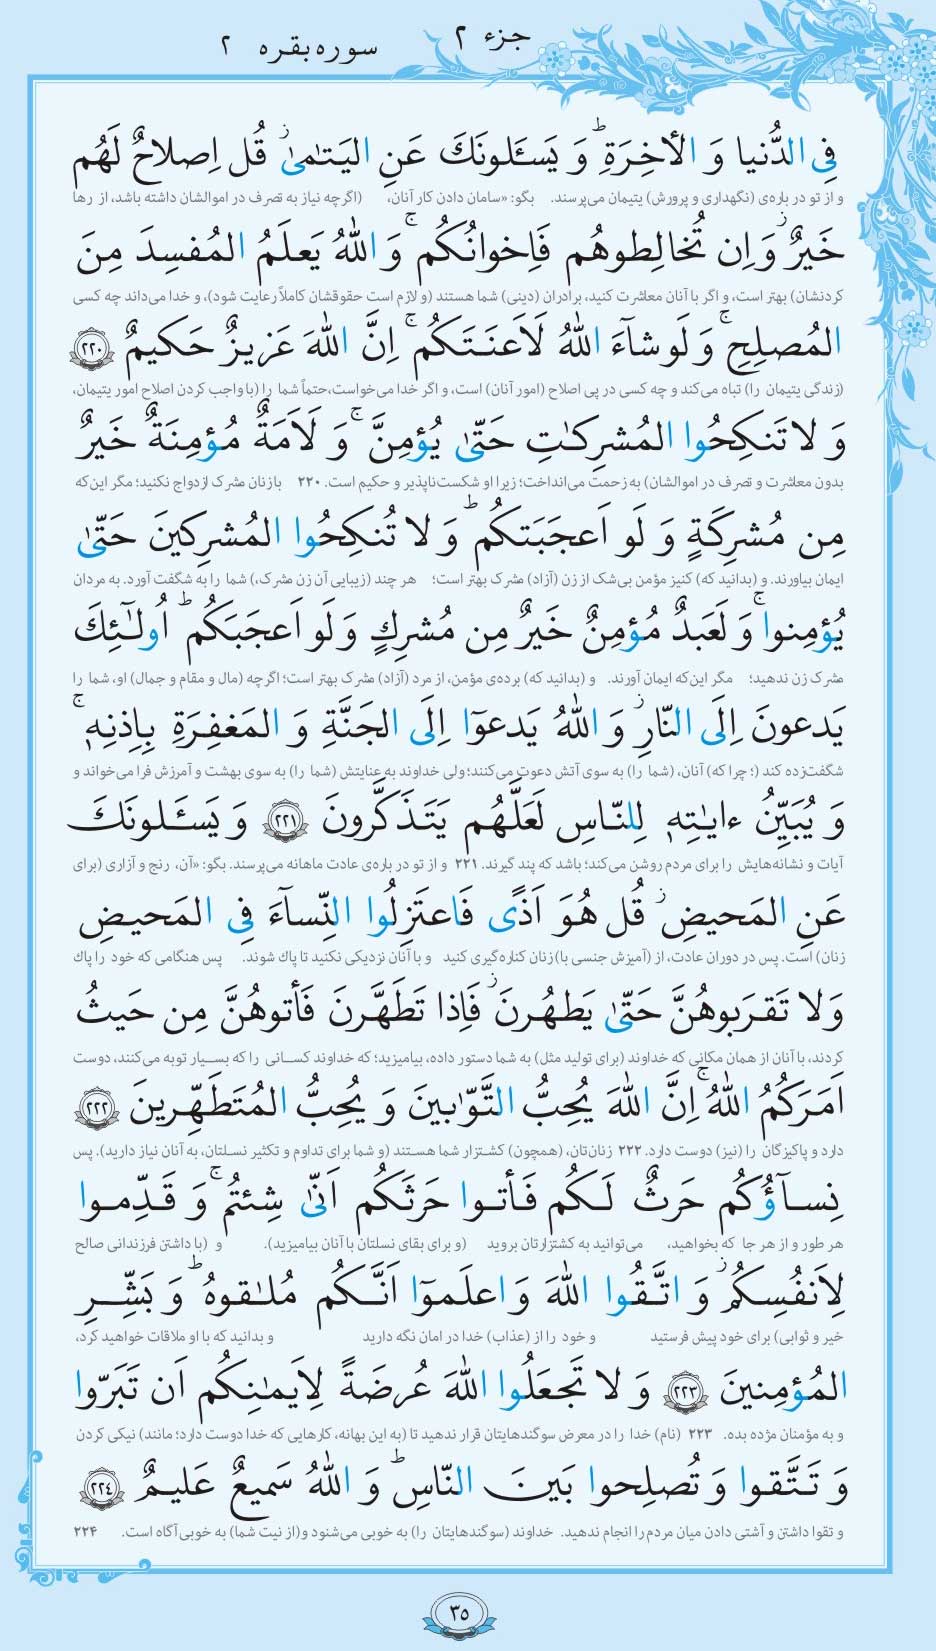 جزء ۲
سوره بقره ۲
فِی الدُّنیا وَ الْأٰخِرَةِ ۗ وَ یَسـَٔلونَكَ عَنِ الیَتٰمیٰ ۖ قُل اِصلاحٌ لَهُم
و از تو در باره‌ی (نگهداری و پرورش) یتیمان می‌پرسند. بگو: «سامان دادن کار آنان، (اگرچه نیاز به تصرف در اموالشان داشته باشد، از رها
خَیرٌ ۖ وَ اِن تُخالِطوهُم فَاِخوانُكُم ۚ وَ اللهُ یَعلَمُ المُفسِدَ مِنَ
کردنشان) بهتر است، و اگر با آنان معاشرت کنید، برادران (دینی) شما هستند (و لازم است حقوقشان کاملاً رعایت شود)، و خدا می‌داند چه کسی
المُصلِحِ ۚ وَ لَو شاءَ اللهُ لَاَعنَتَكُم ۚ اِنَّ اللهَ عَزیزٌ حَكیمٌ ﴿٢٢٠﴾
(زندگی یتیمان را) تباه می‌کند و چه کسی در پی اصلاح (امور آنان) است، و اگر خدا می‌خواست،حتماً شما را (با واجب کردن اصلاح امور یتیمان،
وَ لا تَنكِحُوا المُشرِكٰتِ حَتّیٰ یُؤمِنَّ ۚ وَ لَاَمَةٌ مُؤمِنَةٌ خَیرٌ
بدون معاشرت و تصرف در اموالشان) به زحمت می‌انداخت؛ زیرا او شکست‌ناپذیر و حکیم است. ۲۲۰ با زنان مشرک ازدواج نکنید؛ مگر این‌که
مِن مُشرِكَةٍ وَ لَو اَعجَبَتكُم ۗ وَ لا تُنكِحُوا المُشرِكینَ حَتّیٰ
ایمان بیاورند. و (بدانید که) کنیز مؤمن بی‌شک از زن (آزاد) مشرک بهتر است؛ هر چند (زیبایی آن زن مشرک،) شما را به شگفت آورد. به مردان
یُؤمِنوا ۚ وَ لَعَبدٌ مُؤمِنٌ خَیرٌ مِن مُشرِكٍ وَ لَو اَعجَبَكُم ۗ اُولٰئِكَ
مشرک زن ندهید؛ مگر این‌که ایمان آورند. و (بدانید که) برده‌ی مؤمن، از مرد (آزاد) مشرک بهتر است؛ اگرچه (مال و مقام و جمال) او، شما را
یَدعونَ اِلَی النّارِ ۖ وَ اللهُ یَدعوٓا اِلَی الجَنَّةِ وَ المَغفِرَةِ بِاِذنِهٖ ۚ
شگفت‌زده کند (؛ چرا که) آنان، (شما را) به سوی آتش دعوت می‌کنند؛ ولی خداوند به عنایتش (شما را) به سوی بهشت و آمرزش فرا می‌خواند و
وَ یُبَیِّنُ ءایٰتِهٖ لِلنّاسِ لَعَلَّهُم یَتَذَكَّرونَ ﴿٢٢١﴾ وَ یَسـَٔلونَكَ
آیات و نشانه‌هایش را برای مردم روشن می‌کند؛ باشد که پند گیرند. ۲۲۱ و از تو در باره‌ی عادت ماهانه می‌پرسند. بگو: «آن، رنج و آزاری (برای
عَنِ المَحیضِ ۖ قُل هُوَ اَذًی فَاعتَزِلُوا النِّساءَ فِی المَحیضِ
زنان) است. پس در دوران عادت، از (آمیزش جنسی با) زنان کناره‌گیری کنید و با آنان نزدیکی نکنید تا پاك شوند. پس هنگامی که خود را پاك
وَ لا تَقرَبوهُنَّ حَتّیٰ یَطهُرنَ ۖ فَاِذا تَطَهَّرنَ فَأتوهُنَّ مِن حَیثُ
کردند، با آنان از همان مکانی که خداوند (برای تولید مثل) به شما دستور داده، بیامیزید؛ که خداوند کسانی را که بسیار توبه می‌کنند، دوست
اَمَرَكُمُ اللهُ ۚ اِنَّ اللهَ یُحِبُّ التَّوّابینَ وَ یُحِبُّ المُتَطَهِّرینَ ﴿٢٢٢﴾
دارد و پاکیزگان را (نیز) دوست دارد. ۲۲۲ زنان‌تان، (همچون) کشتزار شما هستند (و شما برای تداوم و تکثیر نسلتان، به آنان نیاز دارید). پس
نِساؤُكُم حَرثٌ لَكُم فَأتوا حَرثَكُم اَنّیٰ شِئتُم ۖ وَ قَدِّموا
هر طور و از هر جا که بخواهید، می‌توانید به کشتزارتان بروید (و برای بقای نسلتان با آنان بیامیزید). و (با داشتن فرزندانی صالح
لِاَنفُسِكُم ۚ وَ اتَّقُوا اللهَ وَ اعلَموٓا اَنَّكُم مُلٰقوهُ ۗ وَ بَشِّرِ
خیر و ثوابی) برای خود پیش فرستید و خود را از (عذاب) خدا در امان نگه دارید و بدانید که با او ملاقات خواهید کرد،
المُؤمِنینَ ﴿٢٢٣﴾ وَ لا تَجعَلُوا اللهَ عُرضَةً لِاَیمٰنِكُم اَن تَبَرّوا
و به مؤمنان مژده بده. ۲۲۳ (نام) خدا را در معرض سوگندهایتان قرار ندهید تا (به این بهانه، کارهایی که خدا دوست دارد؛ مانند) نیکی کردن
وَ تَتَّقوا وَ تُصلِحوا بَینَ النّاسِ ۗ وَ اللهُ سَمیعٌ عَلیمٌ ﴿٢٢٤﴾
و تقوا داشتن و آشتی دادن میان مردم را انجام ندهید. خداوند (سوگندهایتان را) به خوبی می‌شنود و (از نیت شما) به خوبی آگاه است. ۲۲۴
۳۵